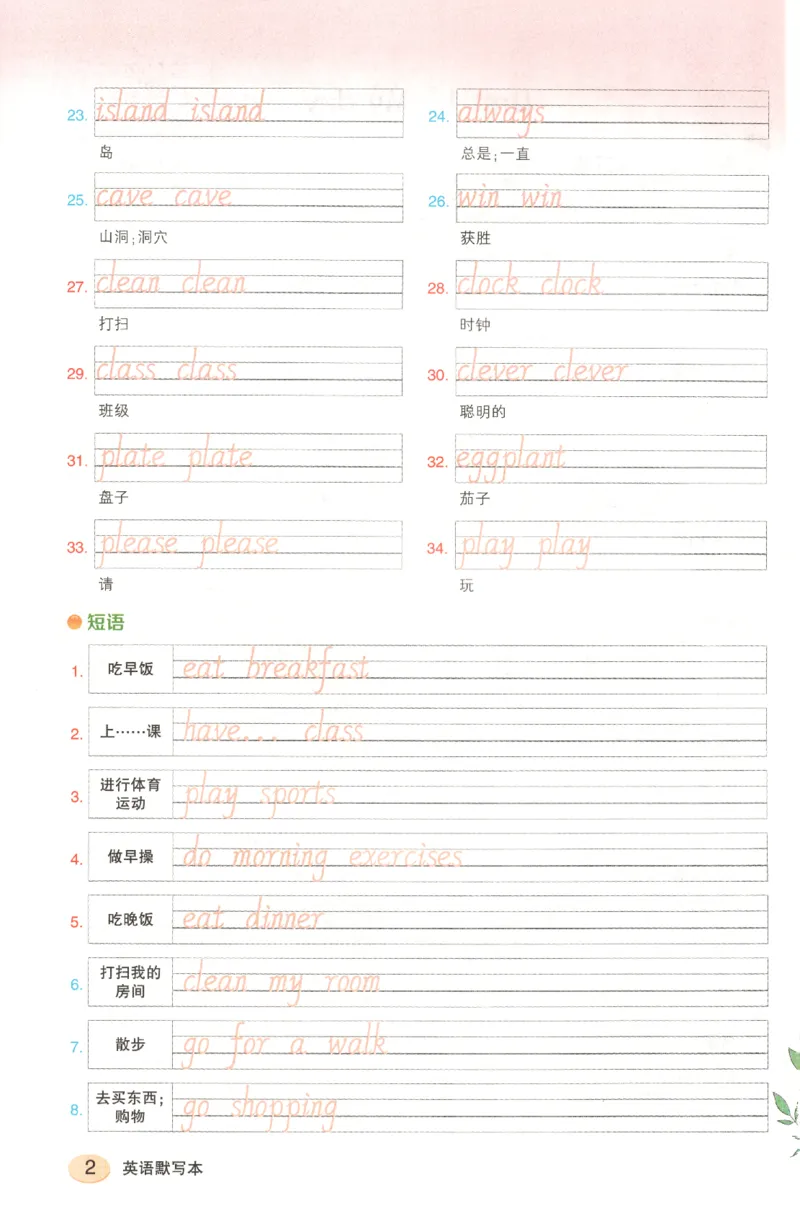 23. island island 24. always
岛 总是;一直
25. cave cave 26. win win
山洞;洞穴 获胜
27. clean clean 28. clock clock
打扫 时钟
29. class class 30. clever clever
班级 聪明的
31. plate plate 32. eggplant
盘子 茄子
33. please please 34. play play
请 玩
短语
1. 吃早饭 eat breakfast
2. 上……课 have... class
3. 进行体育运动 play sports
4. 做早操 do morning exercises
5. 吃晚饭 eat dinner
6. 打扫我的房间 clean my room
7. 散步 go for a walk
8. 去买东西;购物 go shopping
2 英语默写本